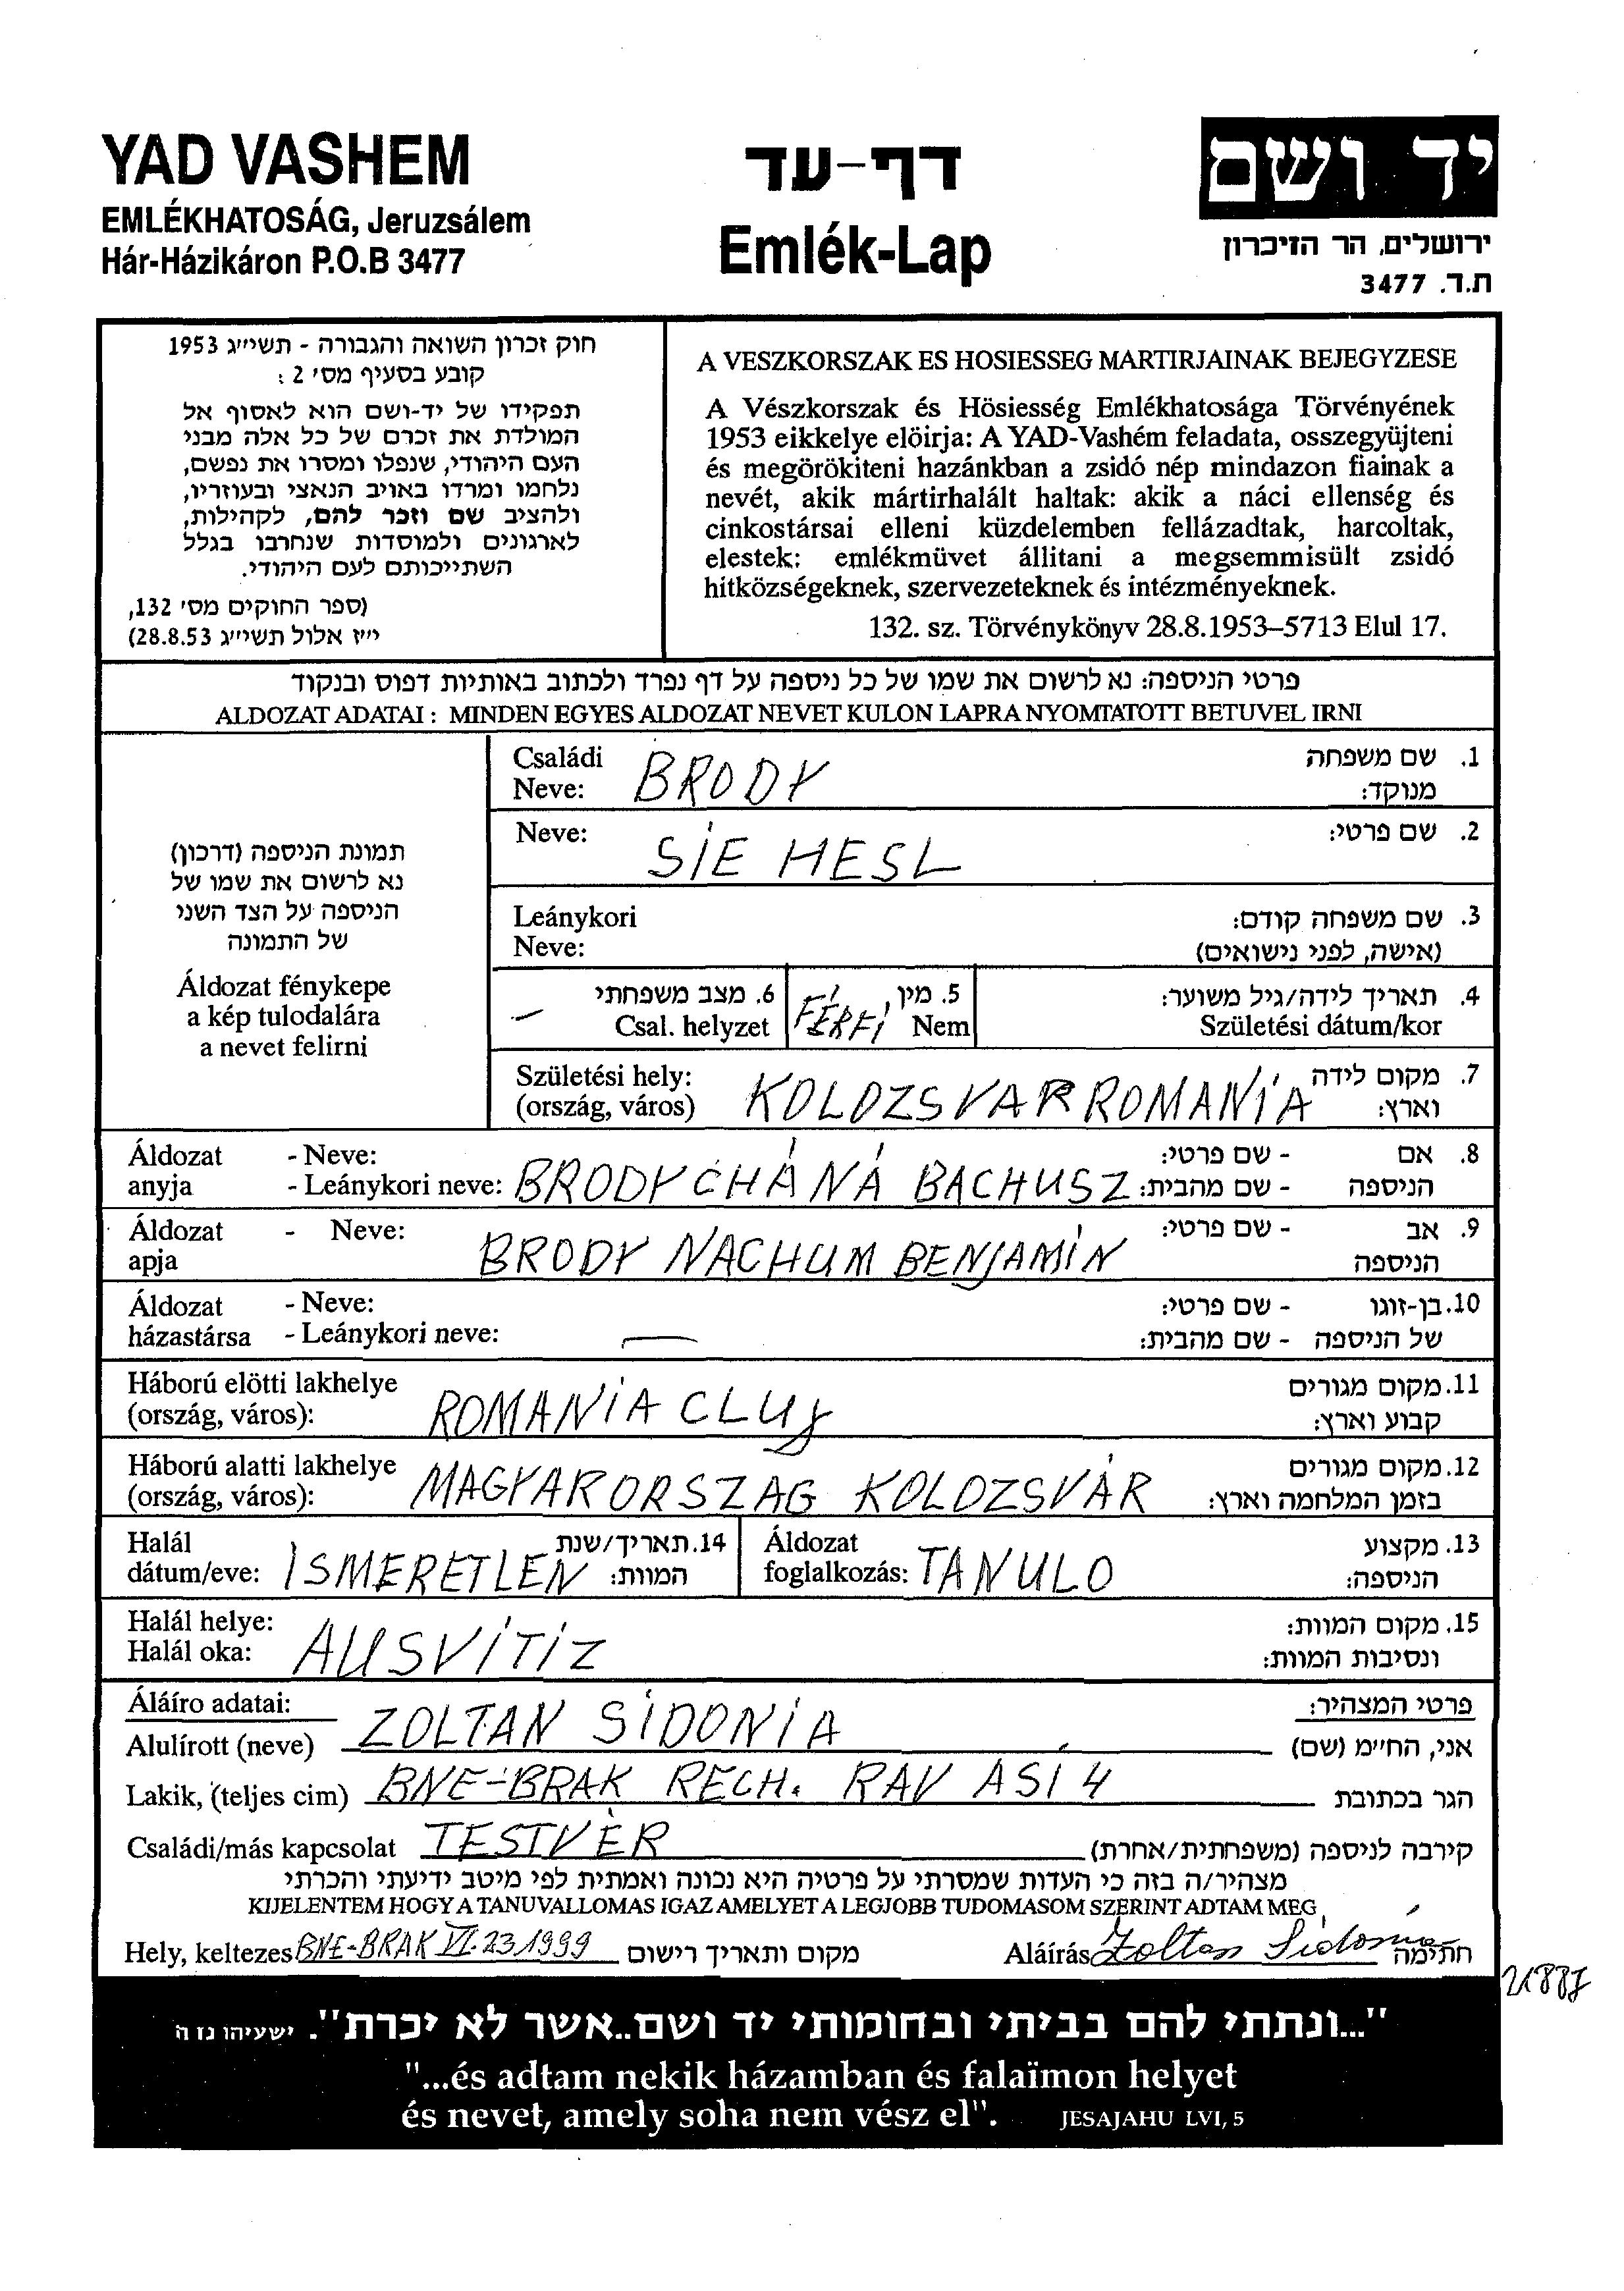 YAD VASHEM
EMLÉKHATOSÁG, Jeruzsálem
Hár-Házikáron P.O.B 3477
דף-עד
Emlék-Lap
יד ושם
ירושלים, הר הזיכרון
ת.ד. 3477
חוק זכרון השואה והגבורה - תשי״ג 1953
קובע בסעיף מס׳ 2 :
תפקידו של יד-ושם הוא לאסוף אל
המולדת את זכרם של כל אלה מבני
העם היהודי, שנפלו ומסרו את נפשם,
נלחמו ומרדו באויב הנאצי ובעוזריו,
ולהציב שם וזכר להם, לקהילות,
לארגונים ולמוסדות שנחרבו בגלל
השתייכותם לעם היהודי.
(ספר החוקים מס׳ 132,
י״ז אלול תשי״ג 28.8.53)
A VESZKORSZAK ES HOSIESSEG MARTIRJAINAK BEJEGYZESE
A Vészkorszak és Hösiesség Emlékhatosága Törvényének
1953 eikkelye elöirja: A YAD-Vashém feladata, osszegyüjteni
és megörökiteni hazánkban a zsidó nép mindazon fiainak a
nevét, akik mártirhalált haltak: akik a náci ellenség és
cinkostársai elleni küzdelemben fellázadtak, harcoltak,
elestek: emlékmüvet állitani a megsemmisült zsidó
hitközségeknek, szervezeteknek és intézményeknek.
132. sz. Törvénykönyv 28.8.1953–5713 Elul 17.
פרטי הניספה: נא לרשום את שמו של כל ניספה על דף נפרד ולכתוב באותיות דפוס ובנקוד
ALDOZAT ADATAI : MINDEN EGYES ALDOZAT NEVET KULON LAPRA NYOMTATOTT BETUVEL IRNI
תמונת הניספה (דרכון)
נא לרשום את שמו של
הניספה על הצד השני
של התמונה
Áldozat fénykepe
a kép tulodalára
a nevet felirni
Családi 1. שם משפחה
Neve: BRODY מנוקד:
Neve: 2. שם פרטי:
SIE HESL
Leánykori 3. שם משפחה קודם:
Neve: (אישה, לפני נישואים)
6. מצב משפחתי 5. מין, 4. תאריך לידה/גיל משוער:
— Csal. helyzet FÉRFI Nem Születési dátum/kor
Születési hely: 7. מקום לידה
(ország, város) KOLOZSVAR ROMANIA וארץ:
Áldozat - Neve: - שם פרטי: 8. אם
anyja - Leánykori neve: BRODY CHÁNÁ BACHUSZ - שם מהבית: הניספה
Áldozat - Neve: - שם פרטי: 9. אב
apja BRODY NACHUM BENJAMIN הניספה
Áldozat - Neve: - שם פרטי: 10. בן-זוגו
házastársa - Leánykori neve: — - שם מהבית: של הניספה
Háború elötti lakhelye 11. מקום מגורים
(ország, város): ROMANIA CLUJ קבוע וארץ:
Háború alatti lakhelye 12. מקום מגורים
(ország, város): MAGYARORSZAG KOLOZSVÁR בזמן המלחמה וארץ:
Halál 14. תאריך/שנת Áldozat 13. מקצוע
dátum/eve: ISMERETLEN המוות: foglalkozás: TANULO הניספה:
Halál helye: 15. מקום המוות:
Halál oka: AUSVITIZ ונסיבות המוות:
Áláíro adatai: פרטי המצהיר:
Alulírott (neve) ZOLTAN SIDONIA אני, הח״מ (שם)
Lakik, (teljes cim) BNE-BRAK RECH. RAV ASI 4 הגר בכתובת
Családi/más kapcsolat TESTVÉR קירבה לניספה (משפחתית/אחרת)
מצהיר/ה בזה כי העדות שמסרתי על פרטיה היא נכונה ואמתית לפי מיטב ידיעתי והכרתי
KIJELENTEM HOGY A TANUVALLOMAS IGAZ AMELYET A LEGJOBB TUDOMASOM SZERINT ADTAM MEG
Hely, keltezes BNE-BRAK VI.23 1999 מקום ותאריך רישום Aláírás Zoltan Sidonia חתימה
"...ונתתי להם בביתי ובחומותי יד ושם..אשר לא יכרת". ישעיהו נז ה
"...és adtam nekik házamban és falaïmon helyet
és nevet, amely soha nem vész el". JESAJAHU LVI, 5